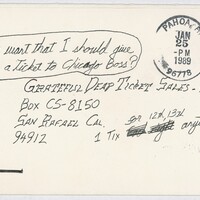 want that I should give
a Ticket to Chicago Boss?
PAHOA,
JAN
25
-PM
1989
96778
GRATEFUL DEAD TICKET SALES -
BOX CS-8150
SAN RAFAEL CA.
94912
1 TIX for 12th, 13th
any